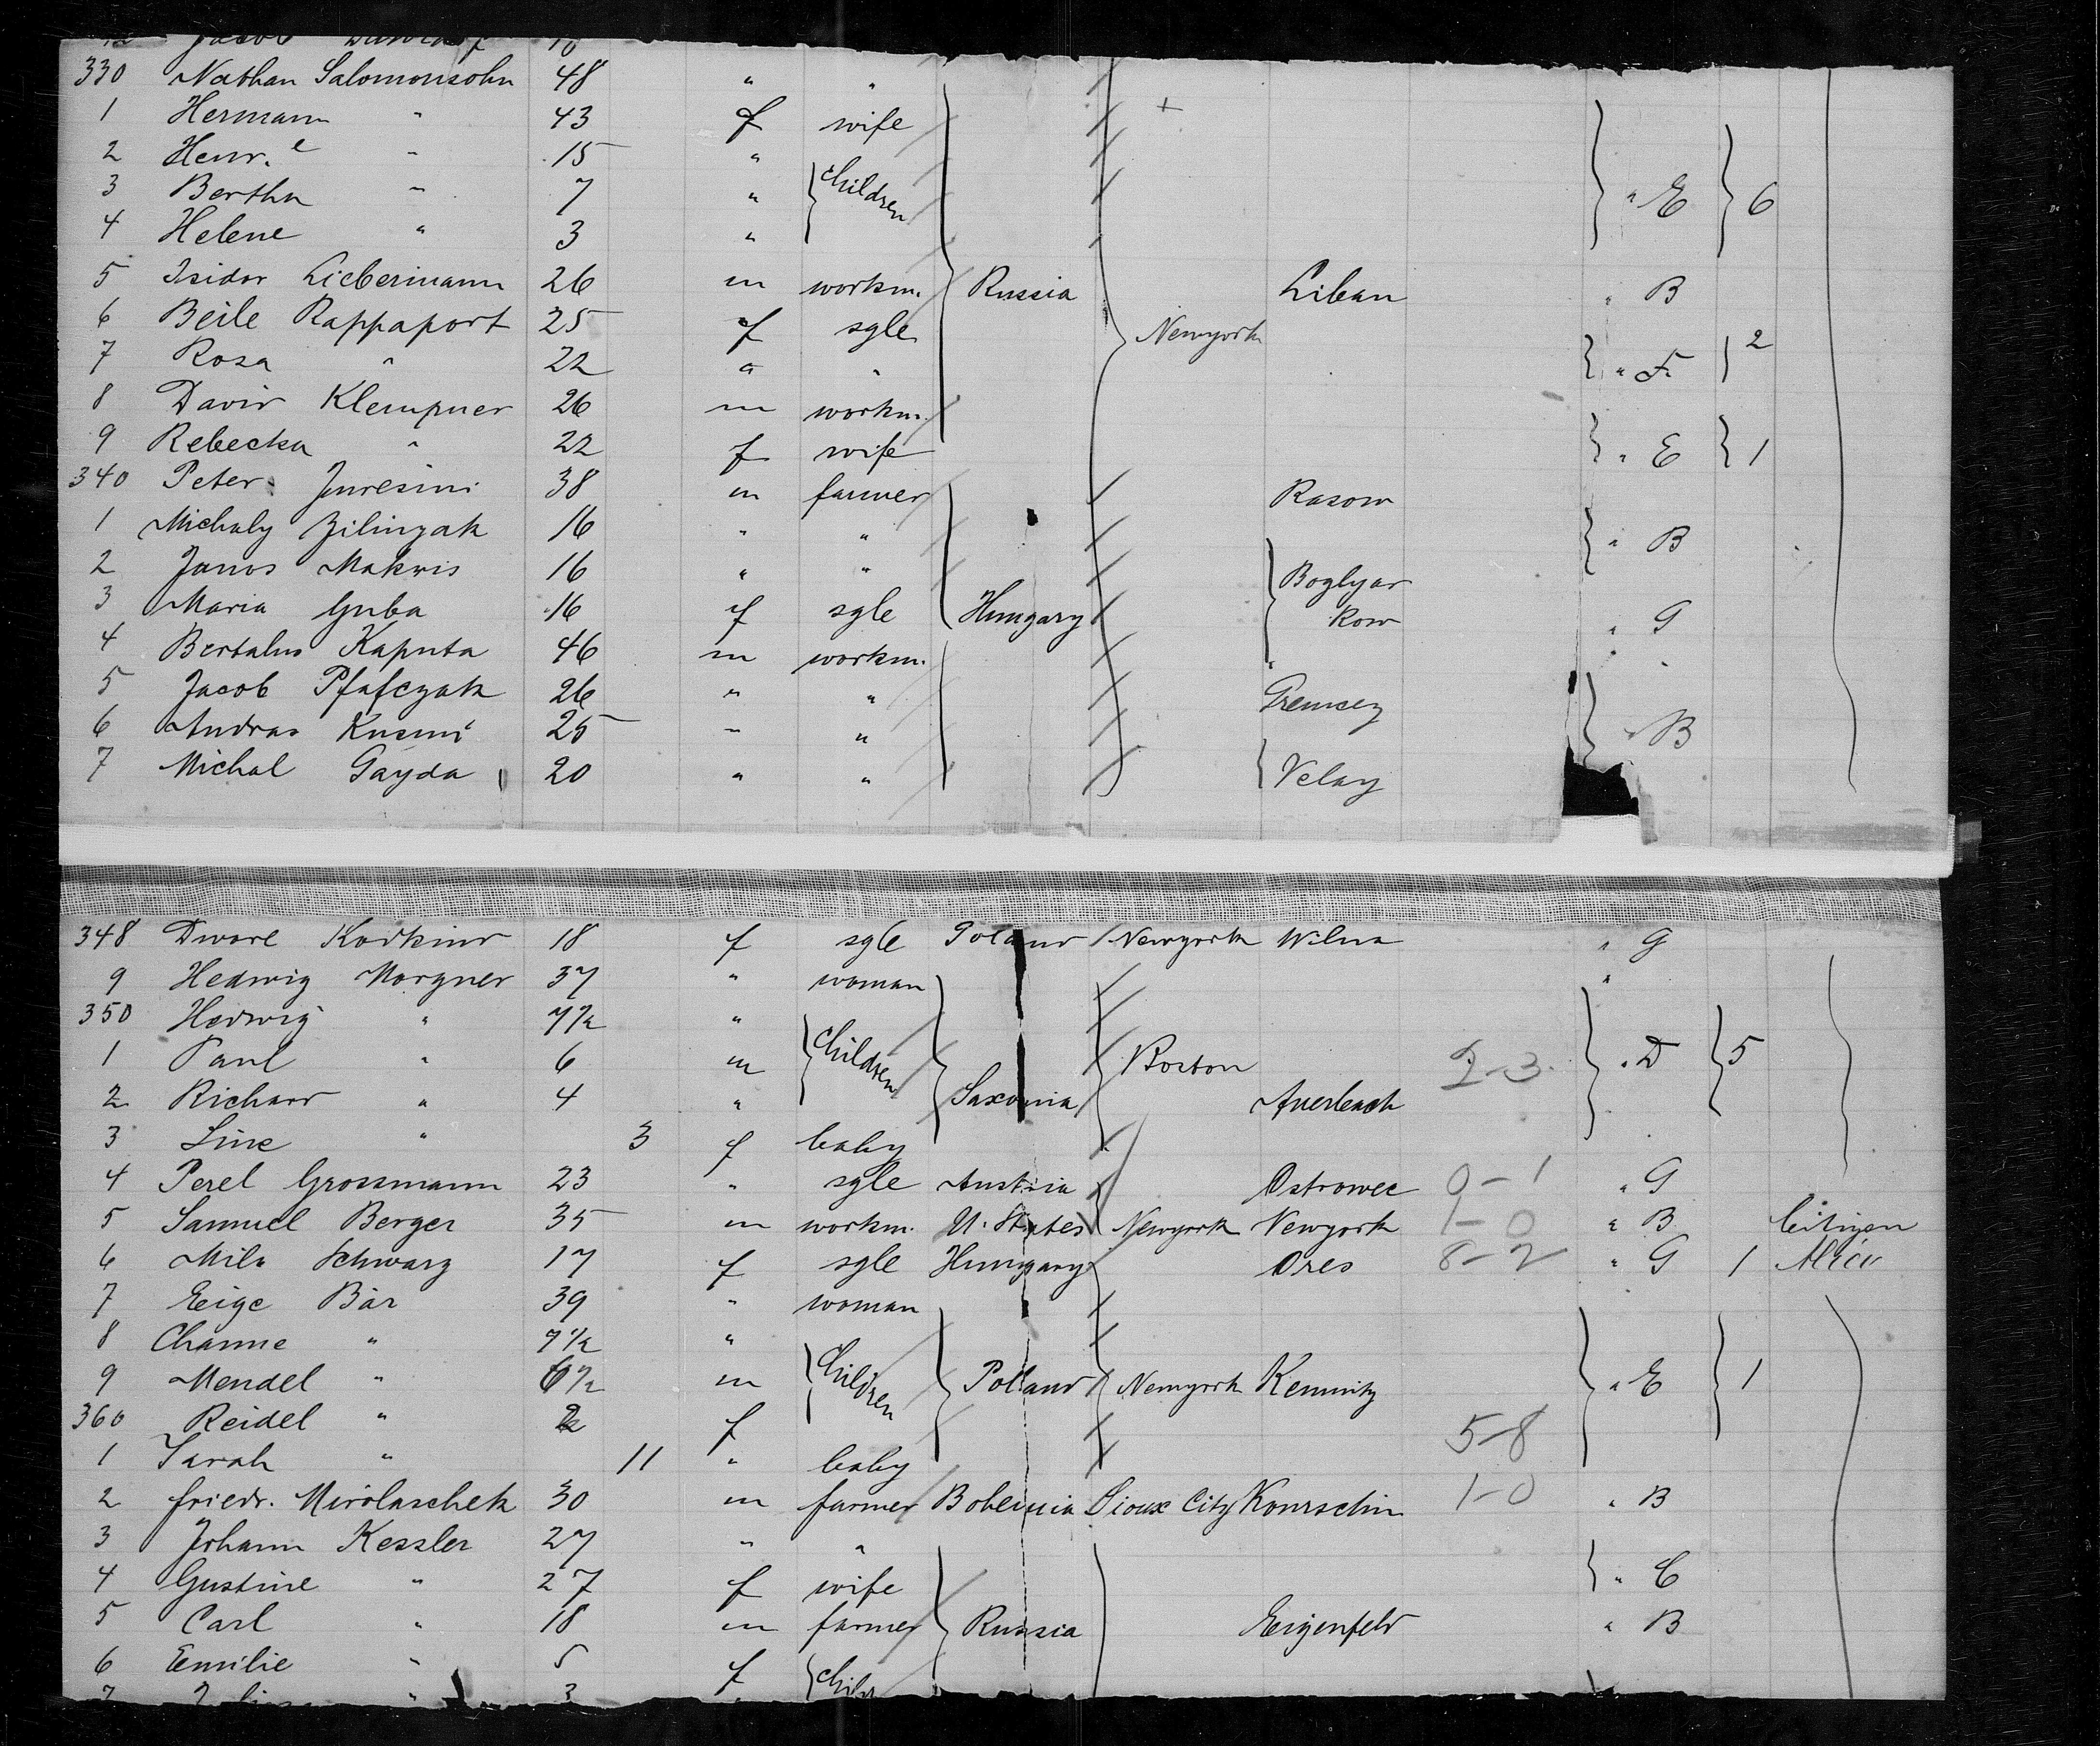 330 Nathan Salomonsohn 48 " "
1 Hermann " 43 f wife
2 Henr.e " 15 " children
3 Bertha " 7 "
4 Helene " 3 " " E 6
5 Isidor Liebermann 26 m workm. Russia Libau " B
6 Beile Rappaport 25 f sgle Newyork
7 Rosa " 22 " " " F. 2
8 David Klempner 26 m workm.
9 Rebecka " 22 f wife " E 1
340 Peter 38 m farmer Rasow
1 Michaly Zilinzak 16 " " " B
2 Janos Makris 16 " " Boglyar
3 Maria Guba 16 f sgle Hungary kow " G
4 Bertalus Kaputa 46 m workm. "
5 Jacob Pfafczak 26 " "
6 Andras 25 " " " B
7 Michal Gayda 20 " " Velay
348 Dwore Kodkind 18 f sgle Poland Newyork Wilna " G
9 Hedwig Morgner 37 " woman "
350 Hedwig " 7½ " children
1 Paul " 6 m Boston 2-3 " D 5
2 Richard " 4 " Saxonia Auerbach
3 Line " 3 f baby
4 Perel Grossmann 23 " sgle Austria Ostrowec 0-1 " G
5 Samuel Berger 35 m workm. U. States Newyork Newyork 1-0 " B Citizen
6 Mila Schwarz 17 f sgle Hungary Ores 8-2 " G 1
7 Eige Bär 39 " woman
8 Channe " 7½ " children
9 Mendel " 6½ m Poland Newyork Kemnitz " E 1
360 Reidel " 2 f 5-8
1 Sarah " 11 " baby
2 Friedr. Mirolaschek 30 m farmer Bohemia Sioux City Kourschin 1-0 " B
3 Johann Kessler 27 " "
4 Gustine " 27 f wife " C
5 Carl " 18 m farmer Russia Eigenfeld " B
6 Emilie " 5 f child
7 " 3